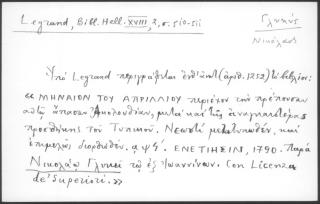 Legrand, Bibl. Hell. XVIII, 2, σ. 510-511
Γλυκύς
Νικόλαος
Ὑπὸ Legrand περιγράφεται ἐνταῦθα (ἀριθ. 1252) τὸ βιβλίον:
« ΜΗΝΑΙΟΝ ΤΟΥ ΑΠΡΙΛΛΙΟΥ περιέχον τὴν πρέπουσαν
αὐτῷ ἅπασαν Ἀκολουθίαν, μετὰ καὶ τῆς ἀναγκαιοτέρας
προσθήκης τοῦ Τυπικοῦ. Νεωστὶ μετατυπωθέν, καὶ
ἐπιμελῶς διορθωθέν. αψϟ. ΕΝΕΤΙΗΣΙΝ, 1790. Παρὰ
Νικολάῳ Γλυκεῖ τῷ ἐξ Ἰωαννίνων. Con Licenza
de' Superiori. »